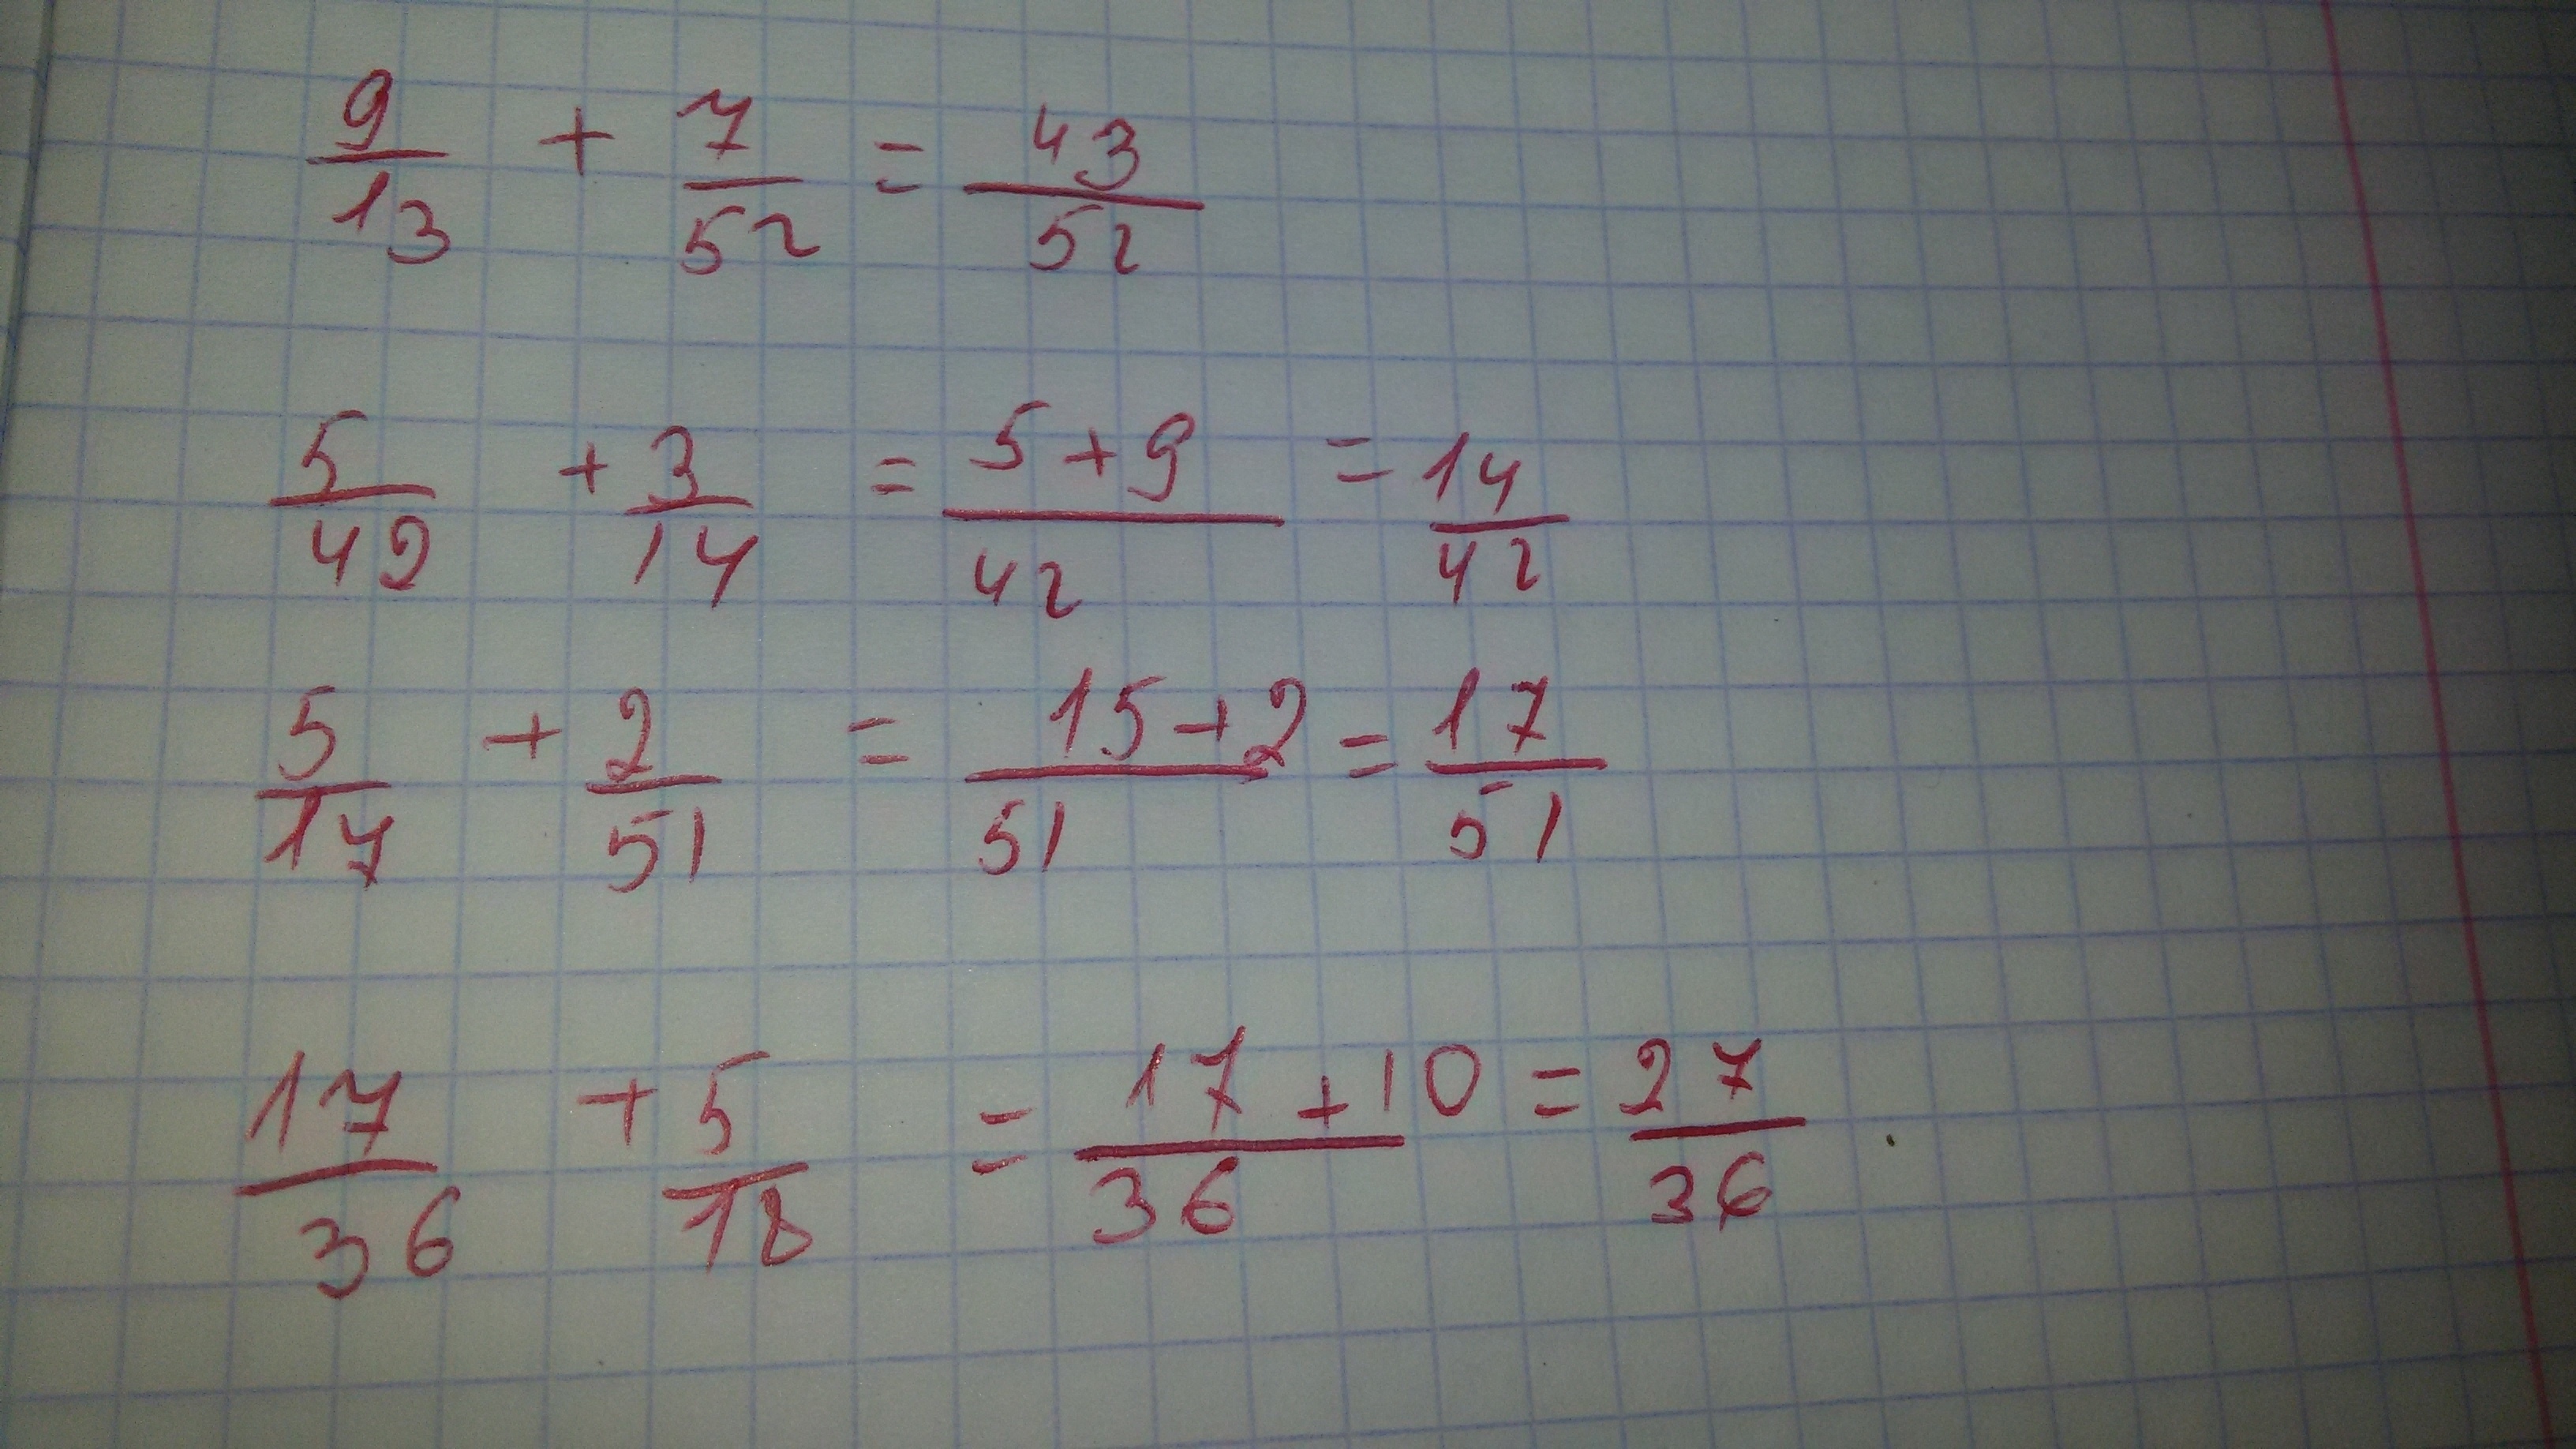 9/13 + 7/52 = 43/52
5/42 + 3/14 = 5+9/42 = 14/42
5/17 + 2/51 = 15+2/51 = 17/51
17/36 + 5/18 = 17+10/36 = 27/36